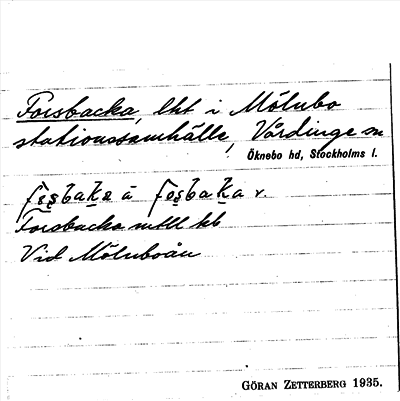 Forsbacka, lht i Mölnbo
stationssamhälle, Vårdinge sn
Öknebo hd, Stockholms l.
Forsbacka mtll kb
Vid Mölnboån
GÖRAN ZETTERBERG 1935.